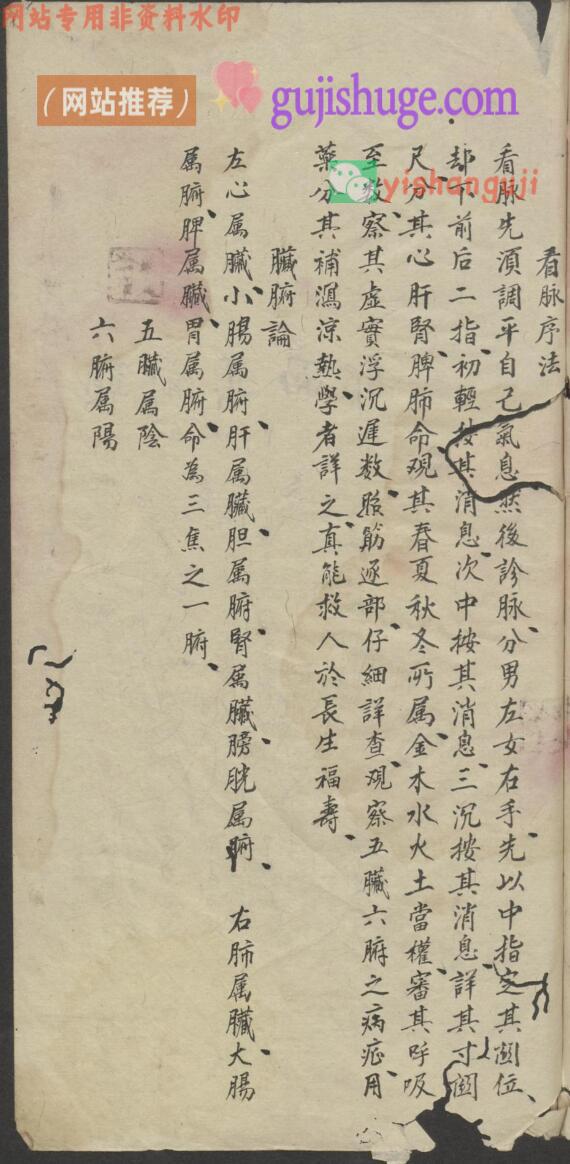 网站专用非资料水印
（网站推荐）
gujishuge.com
yishanguji
看脉序法
看脉先須調平自己氣息然後診脉分男左女右手先以中指定其關位
却下前后二指初輕按其消息次中按其消息三沉按其消息詳其寸關
尺分其心肝腎脾肺命观其春夏秋冬所属金木水火土當權審其呼吸
至数察其虚實浮沉遲数胎筋逐部仔細詳查观察五臟六腑之病症用
藥分其補瀉涼熱學者詳之真能救人於長生福壽
臟腑論
左心属臟小腸属腑肝属臟胆属腑腎属臟膀胱属腑 右肺属臟大腸
属腑脾属臟胃属腑命為三焦之一腑
五臟属陰
六腑属陽